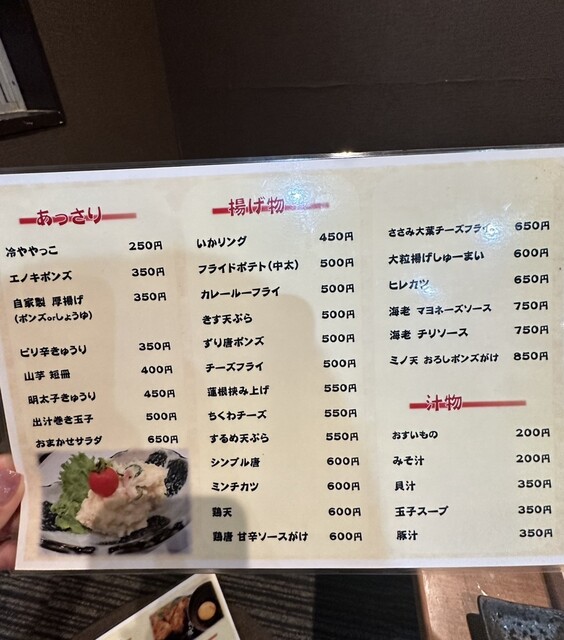 あっさり
冷ややっこ 250円
エノキポンズ 350円
自家製 厚揚げ 350円
(ポンズorしょうゆ)
ピリ辛きゅうり 350円
山芋 短冊 400円
明太子きゅうり 450円
出汁巻き玉子 500円
おまかせサラダ 650円
揚げ物
いかリング 450円
フライドポテト(中太) 500円
カレールーフライ 500円
きす天ぷら 500円
ずり唐ポンズ 500円
チーズフライ 500円
蓮根挟み上げ 550円
ちくわチーズ 550円
するめ天ぷら 550円
シンプル唐 600円
ミンチカツ 600円
鶏天 600円
鶏唐 甘辛ソースがけ 600円
ささみ大葉チーズフライ 650円
大粒揚げしゅーまい 600円
ヒレカツ 650円
海老 マヨネーズソース 750円
海老 チリソース 750円
ミノ天 おろしポンズがけ 850円
汁物
おすいもの 200円
みそ汁 200円
貝汁 350円
玉子スープ 350円
豚汁 350円